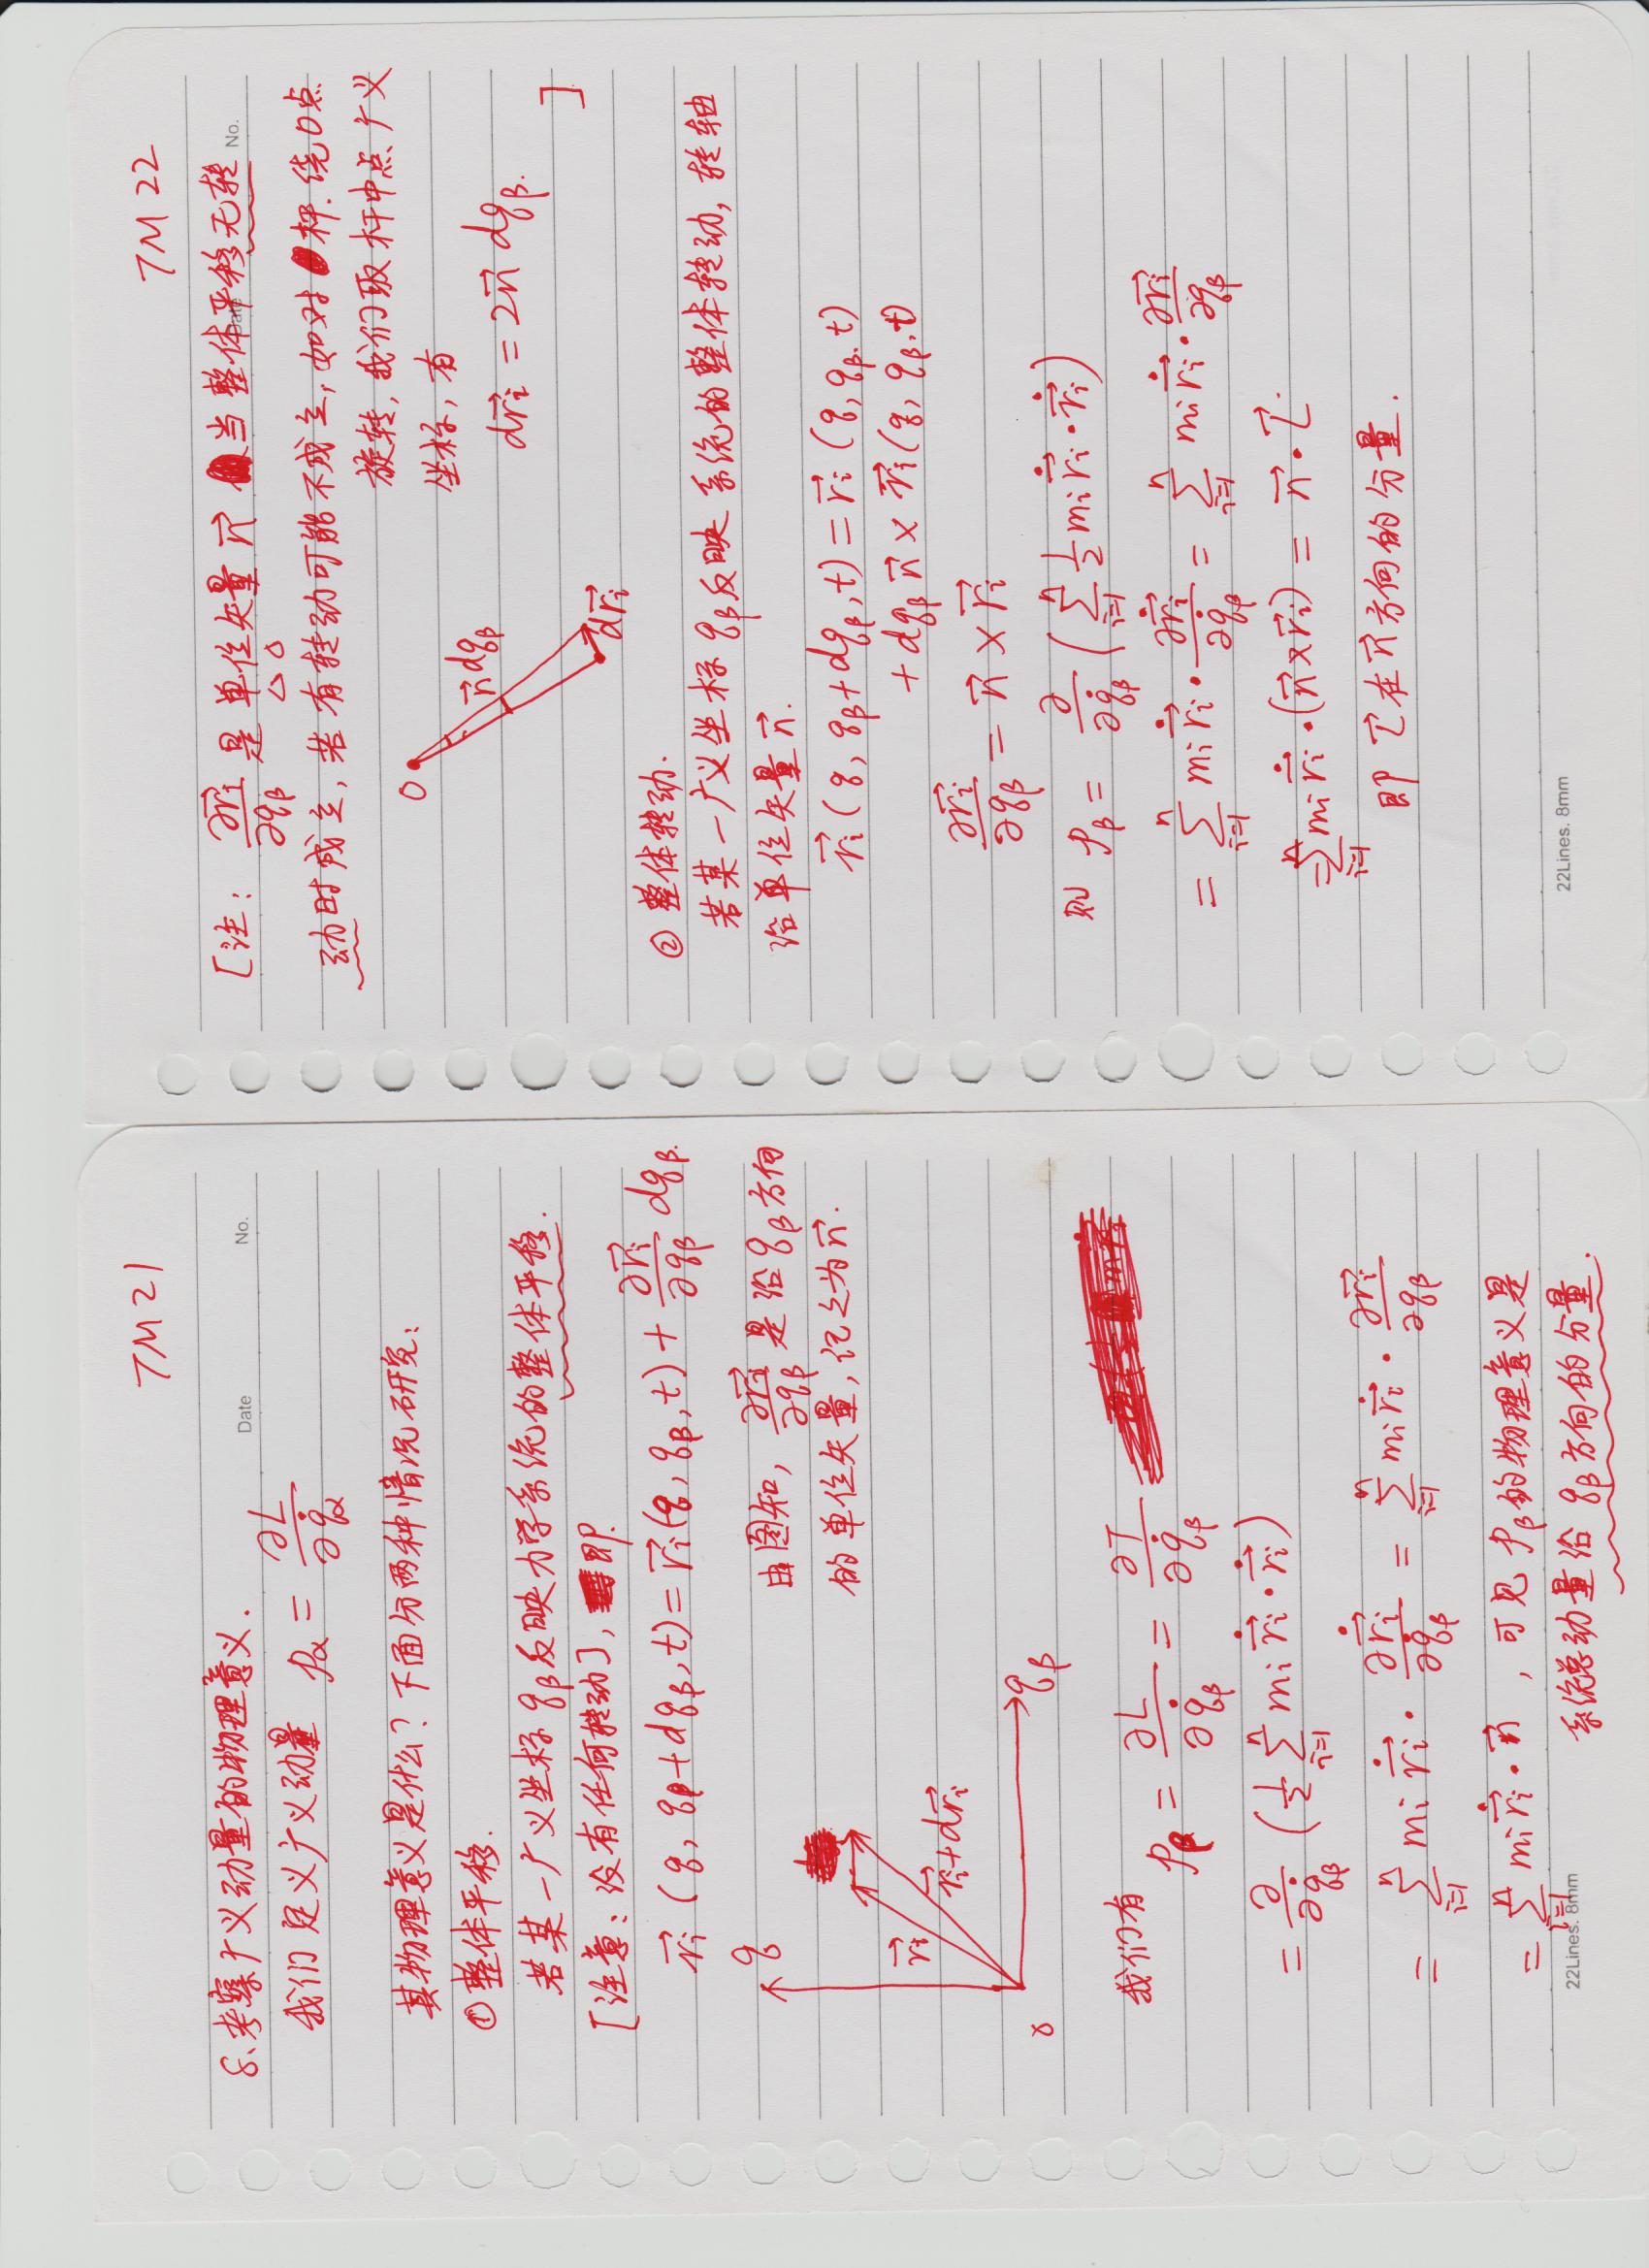 TM21
Date No.
8、考察广义动量的物理意义.
我们定义广义动量 pα = ∂L/∂q̇α
其物理意义是什么?下面分两种情况研究:
① 整体平移.
若某一广义坐标 qβ 反映力学系统的整体平移.
[注意:没有任何转动], 即
r⃗i (q, qβ+dqβ, t) = r⃗i(q, qβ, t) + ∂r⃗i/∂qβ dqβ.
q
由图知, ∂r⃗i/∂qβ 是沿 qβ 方向
的单位矢量, 记之为 n⃗.
r⃗i
r⃗i+dr⃗i
qβ
我们有
pβ = ∂L/∂q̇β = ∂T/∂q̇β
= ∂/∂q̇β (1/2 ∑_{i=1}^{n} mi r⃗̇i · r⃗̇i)
= ∑_{i=1}^{n} mi r⃗̇i · ∂r⃗̇i/∂q̇β = ∑_{i=1}^{n} mi r⃗̇i · ∂r⃗i/∂qβ
= ∑_{i=1}^{n} mi r⃗̇i · n⃗ , 可见 pβ 的物理意义是
系统总动量沿 qβ 方向的分量.
22Lines. 8mm
TM22
Date No.
[注: ∂r⃗i/∂qβ 是单位矢量 n⃗ 当整体平移无转
动时成立, 若有转动可能不成立, 如对杆. 绕O点
旋转, 我们取杆中点广义
坐标, 有
O
n⃗dqβ
dr⃗i = 2n⃗ dqβ.
]
dr⃗i
② 整体转动.
若某一广义坐标 qβ 反映系统的整体转动, 转轴
沿单位矢量 n⃗.
r⃗i (q, qβ+dqβ, t) = r⃗i (q, qβ, t)
+ dqβ n⃗ × r⃗i (q, qβ, t)
∂r⃗i/∂qβ = n⃗ × r⃗i
则 pβ = ∂/∂q̇β (∑_{i=1}^{n} 1/2 mi r⃗̇i · r⃗̇i)
= ∑_{i=1}^{n} mi r⃗̇i · ∂r⃗̇i/∂q̇β = ∑_{i=1}^{n} mi r⃗̇i · ∂r⃗i/∂qβ
= ∑_{i=1}^{n} mi r⃗̇i · (n⃗ × r⃗i) = n⃗ · L⃗.
即 L⃗ 在 n⃗ 方向的分量.
22Lines. 8mm